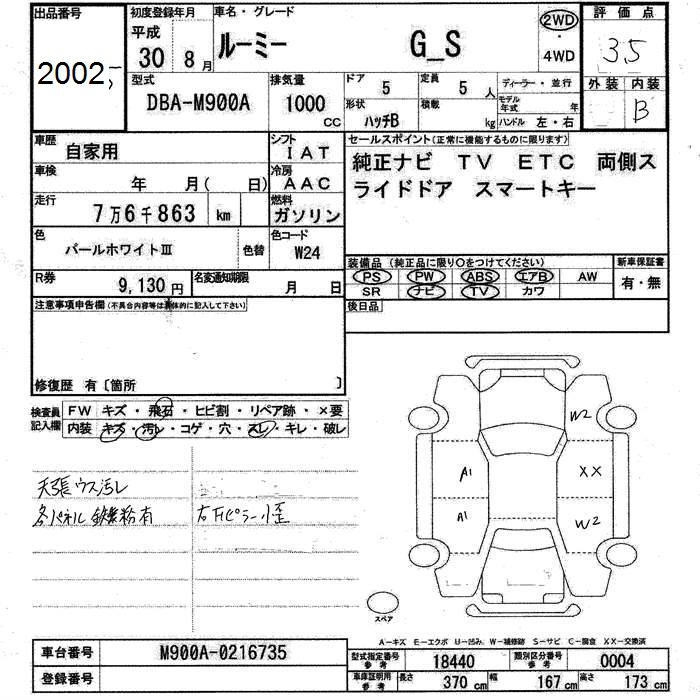 出品番号 初度登録年月 車名・グレード 2WD 評価点
2002 平成 30 8月 ルーミー G_S ・ 4WD 3.5
型式 DBA-M900A 排気量 1000 CC ドア 5 定員 5 人 ディーラー・並行 外装 内装
形状 ハッチB 積載 kg モデル年式 年 ハンドル 左・右 B
車歴 自家用 シフト IAT セールスポイント(正常に機能するものに限ります)
車検 年 月( 日) 冷房 AAC 純正ナビ TV ETC 両側ス
走行 7万6千863 km 燃料 ガソリン ライドドア スマートキー
色 パールホワイトⅢ 色替 色コード W24
装備品 (純正品に限り〇をつけてください) 新車保証書
R券 9,130円 名変通知期限 月 日 PS PW ABS エアB AW 有・無
SR ナビ TV カワ
注意事項申告欄(不具合内容等は具体的に記入して下さい) 後日品
修復歴 有〔箇所 〕
検査員記入欄 FW キズ・飛石・ヒビ割・リペア跡・×要
内装 キズ・汚レ・コゲ・穴・スレ・キレ・破レ
W2
A1 XX
天張ウス汚レ
各パネル鉄粉有 右Fピラー小歪
A1 W2
スペア
A-キズ E-エクボ U-凹み W-補修跡 S-サビ C-腐食 XX-交換済
車台番号 M900A-0216735 型式指定番号 参考 18440 類別区分番号 参考 0004
登録番号 車庫証明用 参考 長さ 370 cm 幅 167 cm 高さ 173 cm